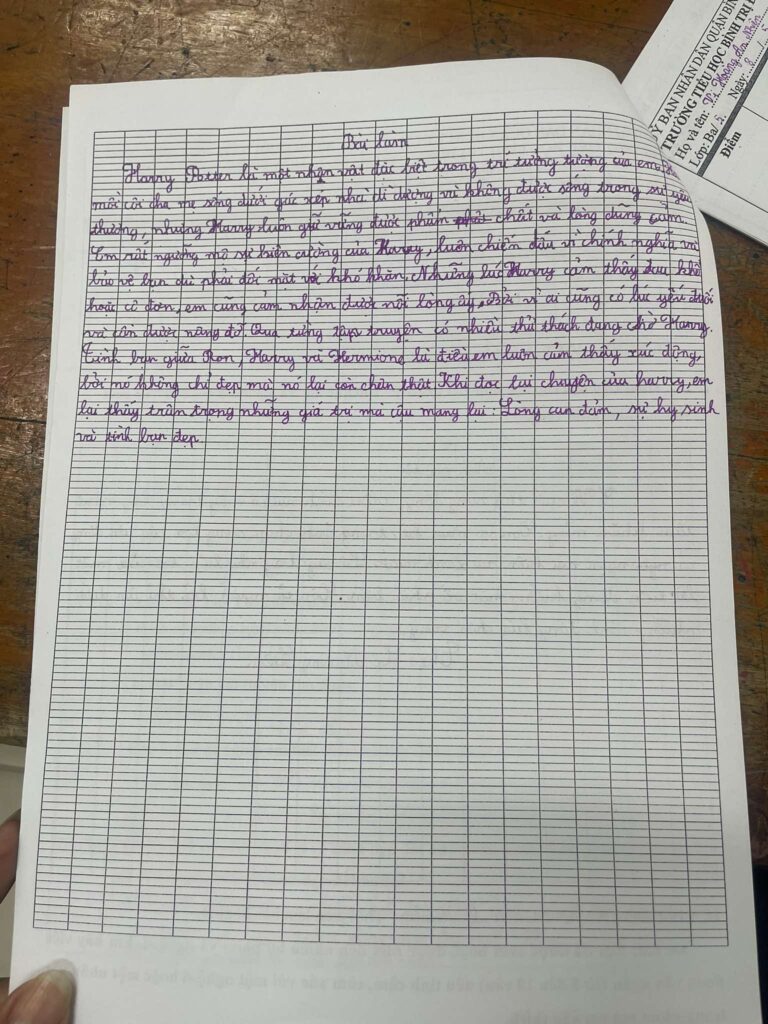 Bài làm
Harry Potter là một nhân vật đặc biệt trong trí tưởng tượng của em.
mồ côi cha mẹ sống dưới gác xếp nhà dì dượng và không được sống trong sự yêu
thương, nhưng Harry luôn giữ vững được phẩm chất và lòng dũng cảm.
Em rất ngưỡng mộ sự kiên cường của Harry, luôn chiến đấu vì chính nghĩa và
bảo vệ bạn dù phải đối mặt với khó khăn. Những lúc Harry cảm thấy đau khổ
hoặc cô đơn, em cũng cảm nhận được nỗi lòng ấy. Bởi vì ai cũng có lúc yếu đuối
và cần được nâng đỡ. Qua từng tập truyện có nhiều thử thách đang chờ Harry.
Tình bạn giữa Ron, Harry và Hermione là điều em luôn cảm thấy xúc động,
bởi nó không chỉ đẹp mà nó lại còn chân thật. Khi đọc lại chuyện của harry, em
lại thấy trân trọng những giá trị mà cậu mang lại: Lòng can đảm, sự hy sinh
và tình bạn đẹp
Ỷ BAN NHÂN DÂN QUẬN BÌN
TRƯỜNG TIỂU HỌC BÌNH TRỊ
Họ và tên:
Lớp: Ba/5. Ngày:
Điểm